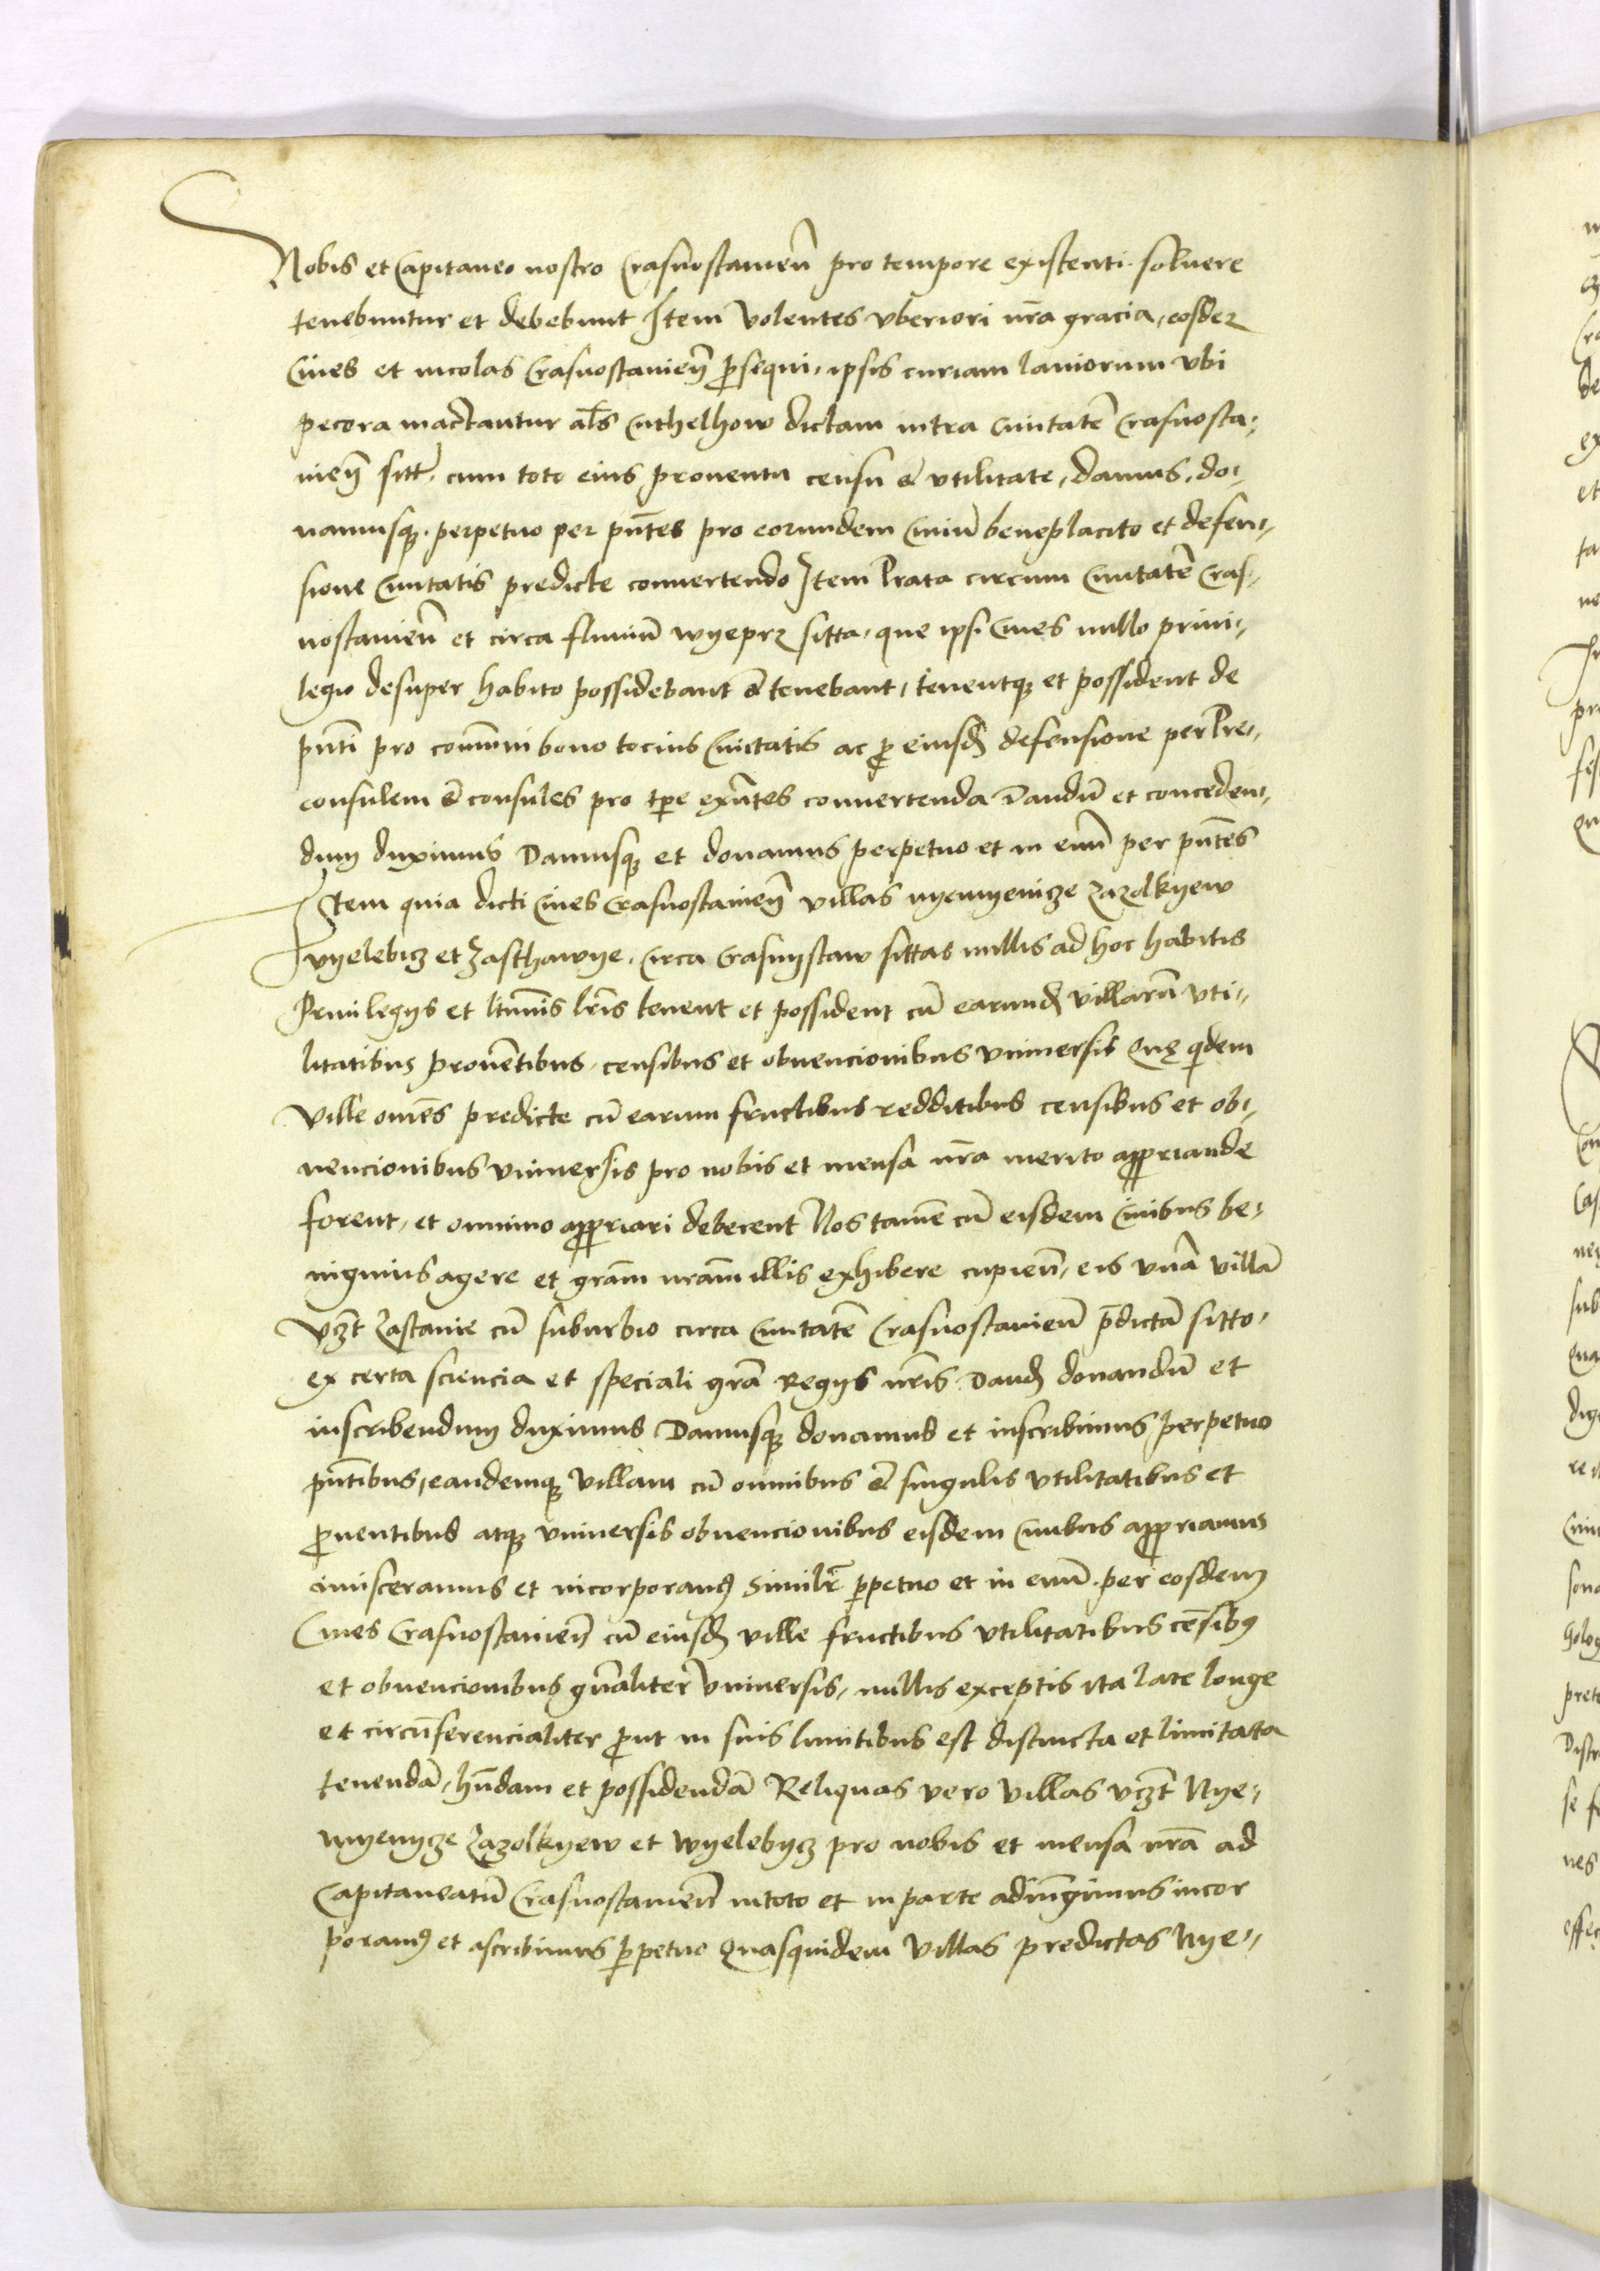 Nobis et Capitaneo nostro Crasnostamień pro tempore existenti soluere
tenebuntur et debebunt Item volentes vberiori nr̃a gracia, eosdeʒ
Ciues et incolas Crasnostanieñ ꝑsequi, ipsis curiam laniorum vbi
pecora mactantur als Cuthelhow dictam intra Ciuitatē Crasnosta,
nieñ sitt̃. cum toto eius prouentu censu & vtilitate, damus, do,
namusqꝫ. perpetuo per pñtes pro eorundem Ciuiū beneplacito et defen,
sione Ciuitatis predicte conuertendo Item Prata circum Ciuitatē Cras,
nostanieñ et circa fluuiū wyeprʒ sitta, que ipsi Ciues nullo priui,
legio desuper habito possidebant & tenebant, tenentqꝫ et possident de
pñti pro com̄uni bono tocius Ciuitatis ac ꝓ eiusđ defensione per Pre,
consulem & consules pro tꝑe exñtes conuertenda Dandū et conceden,
dum duximus Damusqꝫ et donamus perpetuo et in euū per pñtes
Item quia dicti Ciues Crasnostanieñ villas nyemyenicze Zazolkyew
vyelebicz et Zasthawye. circa Crasnystaw sittas nullis ad hoc habitis
Priuilegys et ltimis lr̃is tenent et possident cū earunđ villarū vti,
litatibus prouentibus, censibus et obuencionibus vniuersis Quę qdem
Ville om̄es predicte cū earum fructibus redditibus censibus et ob,
uencionibus vniuersis pro nobis et mensa nr̃a merito appꝓriande
forent, et omnino appꝓriari deberent Nos tamē cū eisdem Ciuibus be,
nignius agere et gram̃ nram̃ illis exhibere cupień, eis vnā villā
Vczt Zastauie cū suburbio circa Ciuitatē Crasnostanień p̄dictā sitto,
ex certa sciencia et speciali grā Regys nr̃is Danđ donandū et
inscribendum duximus Damusqꝫ donamus et inscribimus perpetuo
pñtibus, eandemqꝫ villam cū omnibus & singulis vtilitatibus et
ꝓuentibus atqꝫ vniuersis obuencionibus eisdem Ciuibus appꝓriamus
inuisceramus et incorporamꝰ similr̃ ꝑpetuo et in euū. per eosdem
Ciues Crasnostanieñ cū eiusđ ville fructibus vtilitatibus cēsibꝰ
et obuencionibus gñaliter vniuersis, nullis exceptis ita late longe
et circūferencialiter ꝓut in suis limitibus est distincta et limitata
tenendā, hñdam et possidendā Reliquas vero villas vczt Nye,
myenycze Zazolkyew et Wyelebycz pro nobis et mensa nrā ad
Capitaneatū Crasnostanień in toto et in parte adiūgimus incor
poramꝰ et ascribimus ꝑpetuo Quasquidem villas predictas Nye,